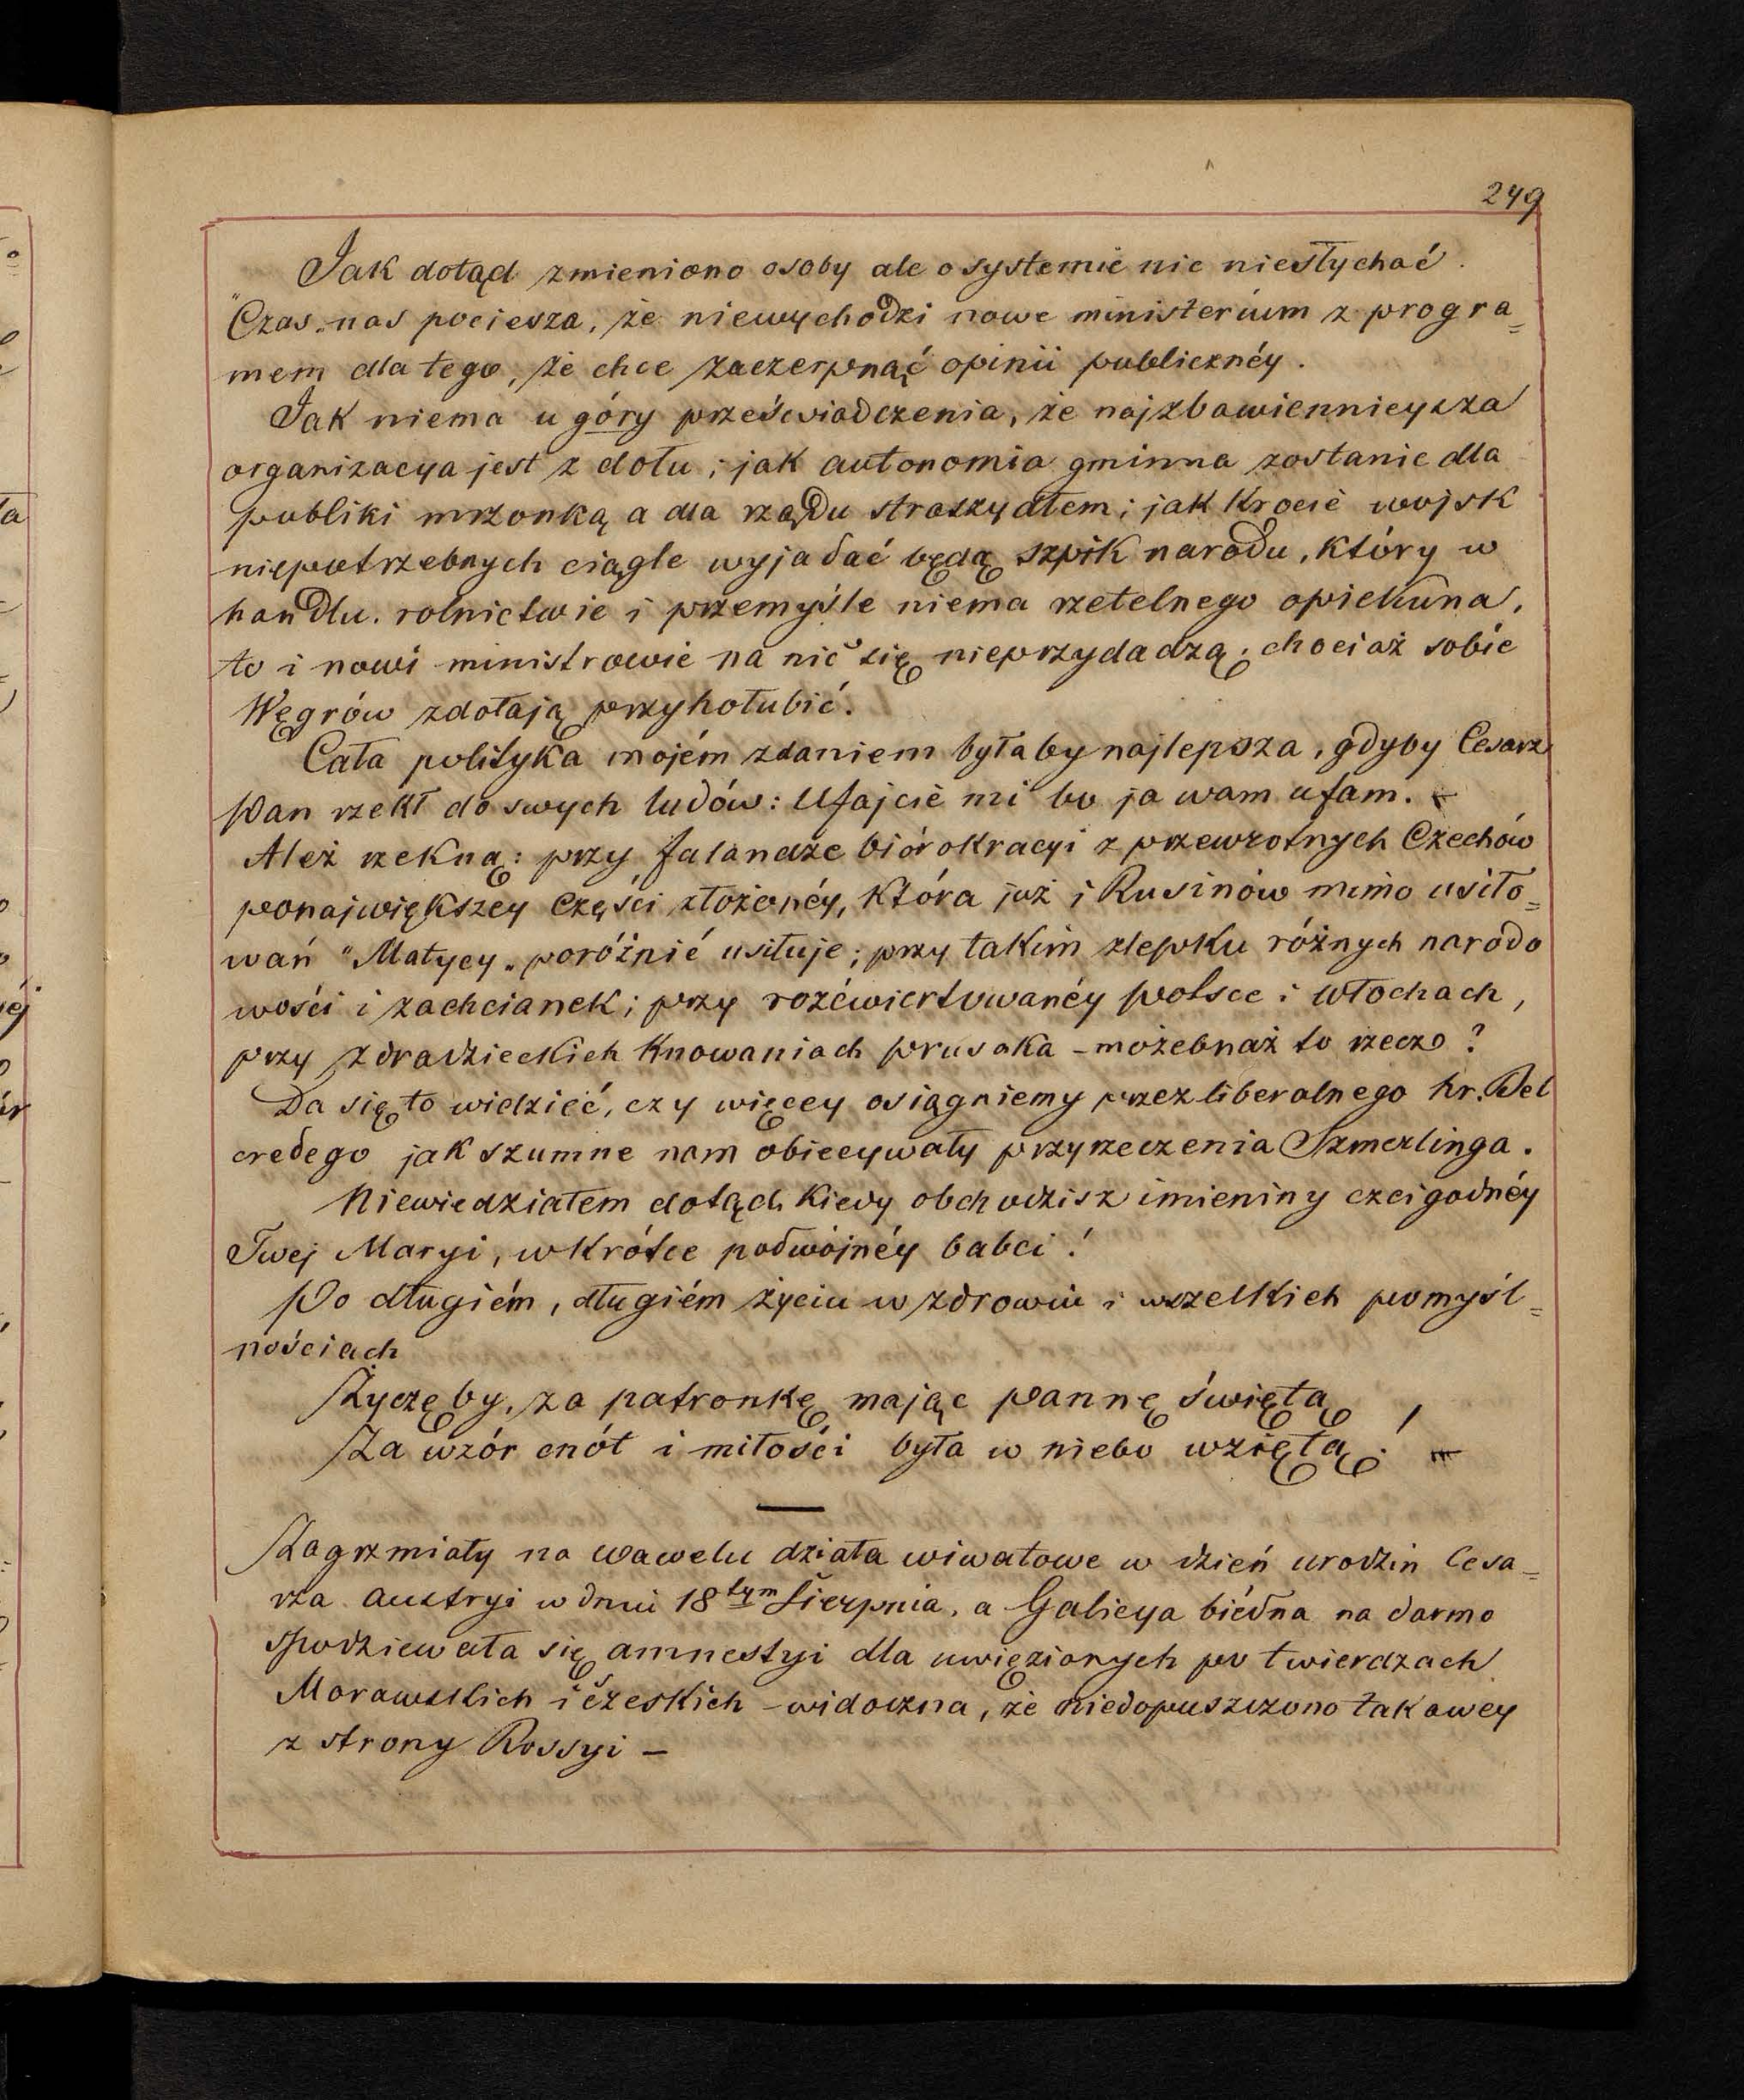 249
Jak dotąd zmieniono osoby ale o systemie nic niesłychać.
"Czas„ nas pociesza, że niewychodzi nowe ministerium z progra=
mem dla tego, że chce zaczerpnąć opinii publicznéy.
Jak niema u góry przeświadczenia, że najzbawiennieysza
organizacya jest z dołu; jak autonomia gminna zostanie dla
publiki mrzonką a dla rządu straszydłem; jak krocie wojsk
niepotrzebnych ciągle wyjadać będą szpik narodu, który w
handlu, rolnictwie i przemyśle niema rzetelnego opiekuna,
to i nowi ministrowie na nic się nieprzydadzą, chociaż sobie
Węgrów zdołają przyhołubić.
Cała polityka mojém zdaniem byłaby najlepsza, gdyby Cesarz
Pan rzekł do swych ludów: Ufajcie mi bo ja wam ufam.
Ależ rzekną: przy falandze biórokracyi z przewrotnych Czechów
ponajwiększey części złożonéy, która już i Rusinów mimo usiło=
wań "Matycy„ poróżnić usiłuje; przy takim zlepku różnych narodo
wości i zachcianek; przy rozćwiertowanéy Polsce i Włochach,
przy zdradzieckich knowaniach prusaka - możebnaż to rzecz?
Da się to widzieć, czy więcey osiągniemy przez liberalnego hr. Bel
credego jak szumne nam obiecywały przyrzeczenia Szmerlinga.
Niewiedziałem dotąd, kiedy obchodzisz imieniny czcigodnéy
Twej Maryi, wkrótce podwójnéy babci!
Po długiém, długiém życiu w zdrowiu i wszelkich pomyśl=
nościach
Życzę by, za patronkę mając pannę świętą
Za wzór cnót i miłości była w niebo wziętą! -
Zagrzmiały na Wawelu działa wiwatowe w dzień urodzin Cesa=
rza Austryi w dniu 18tym Sierpnia, a Galicya biédna na darmo
spodziewała się amnestyi dla uwięzionych po twierdzach
Morawskich i czeskich - widoczna, że niedopuszczono takowey
z strony Rossyi -